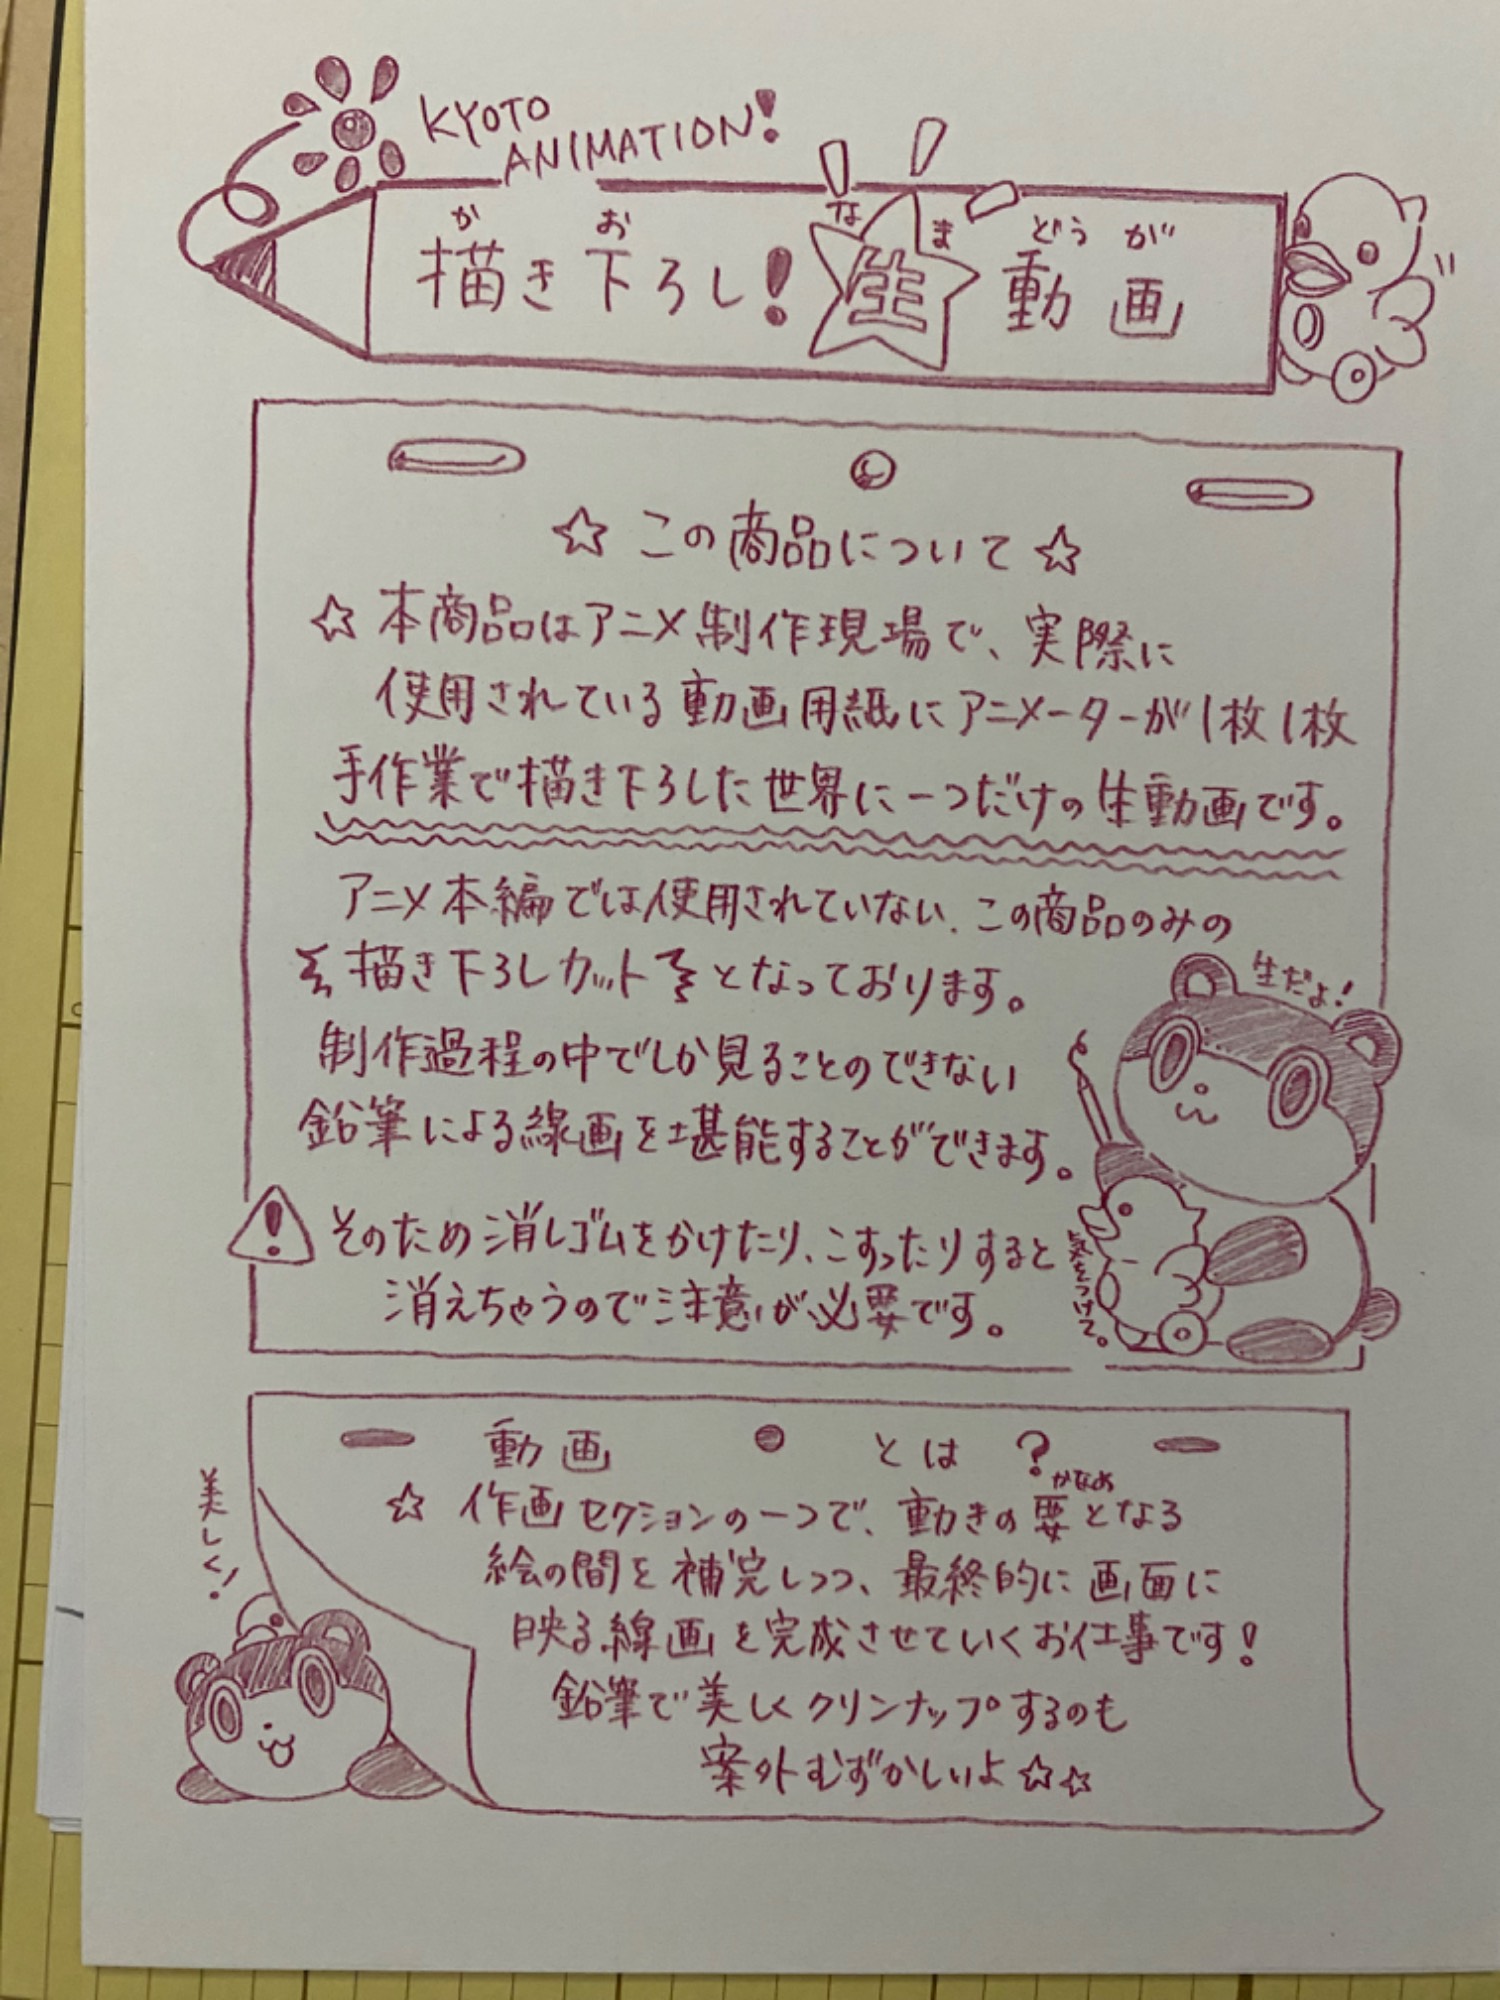 KYOTO
ANIMATION!
か お な ま どう が
描き下ろし!生動画
☆この商品について☆
☆本商品はアニメ制作現場で、実際に
使用されている動画用紙にアニメーターが1枚1枚
手作業で描き下ろした世界に一つだけの生動画です。
アニメ本編では使用されていない、この商品のみの
描き下ろしカットとなっております。
生だよ!
制作過程の中でしか見ることのできない
鉛筆による線画を堪能することができます。
そのため消しゴムをかけたり、こすったりすると
消えちゃうので注意が必要です。
気をつけて。
動画とは?
かなめ
☆作画セクションの一つで、動きの要となる
絵の間を補完しつつ、最終的に画面に
映る線画を完成させていくお仕事です!
鉛筆で美しくクリンナップするのも
案外むずかしいよ☆☆
美しく!